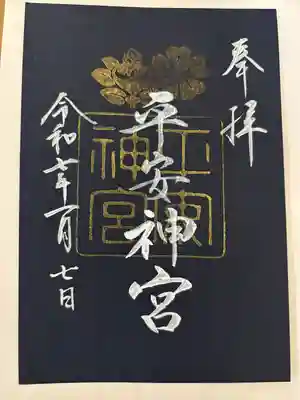 奉拝
平安神宮
令和七年一月七日
神宮